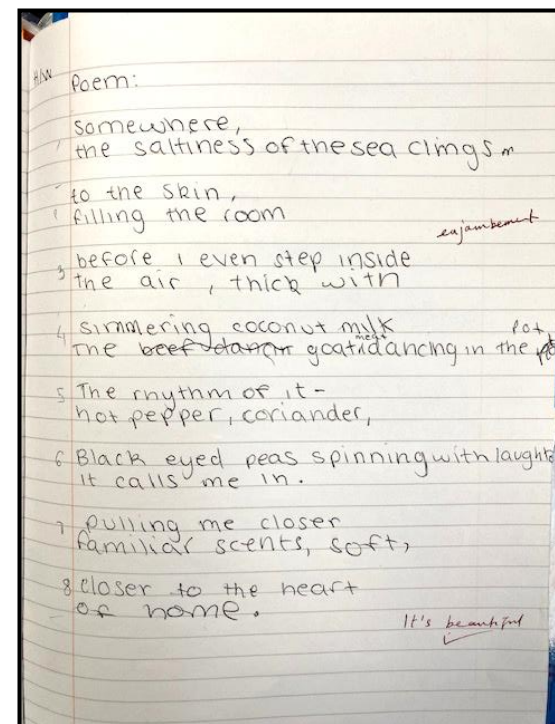 H/W Poem:
somewhere,
the saltiness of the sea clings
to the skin,
filling the room
enjambement
3 before i even step inside
the air, thick with
4 simmering coconut milk
The beef goat meat dancing in the pot
5 The rhythm of it-
hot pepper, coriander,
6 Black eyed peas spinning with laught
it calls me in.
7 pulling me closer
familiar scents, soft,
8 closer to the heart
of home.
It's beautiful